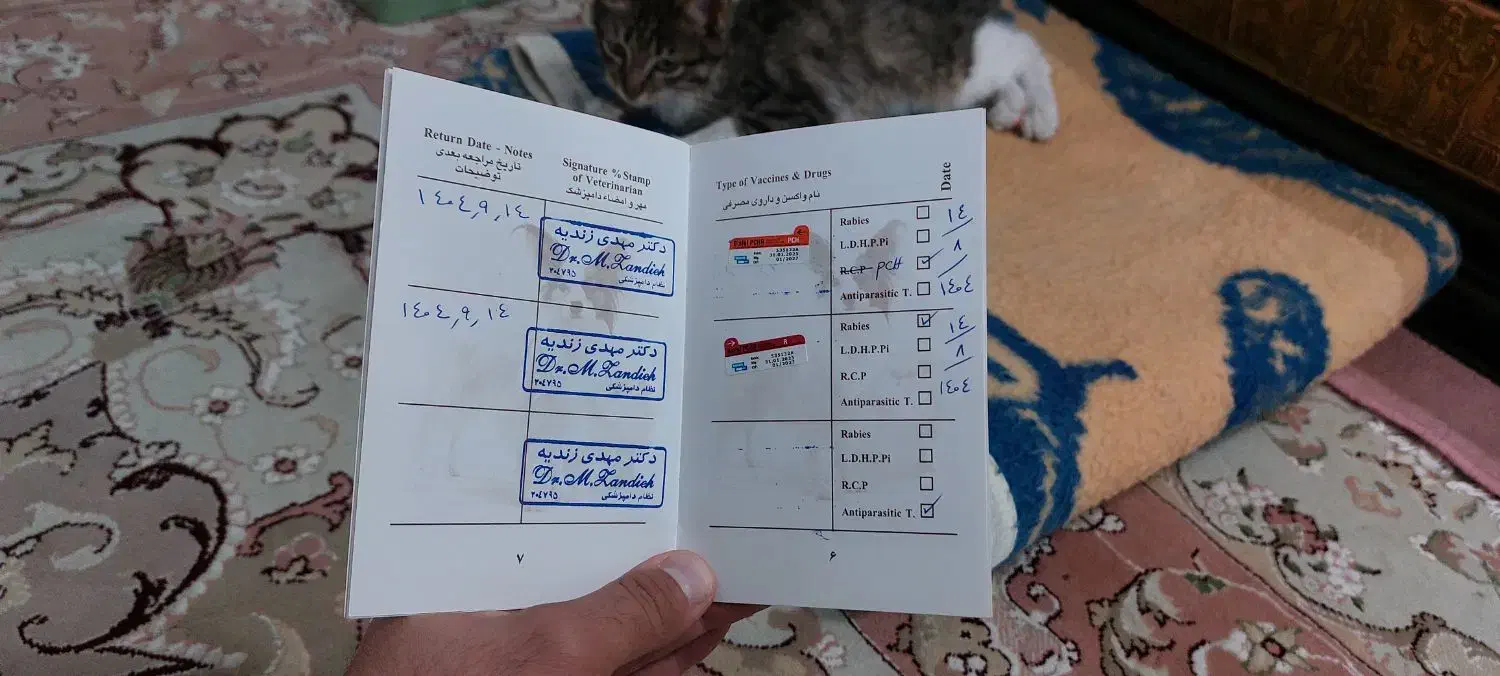 Return Date - Notes
تاریخ مراجعه بعدی
توضیحات
Signature % Stamp
of Veterinarian
مهر و امضاء دامپزشک
۱۴۰۴,۹,۱۴
دکتر مهدی زندیه
Dr. M. Zandieh
۲۰۴۷۹۵ نظام دامپزشکی
۱۴۰۴,۹,۱۴
دکتر مهدی زندیه
Dr. M. Zandieh
۲۰۴۷۹۵ نظام دامپزشکی
دکتر مهدی زندیه
Dr. M. Zandieh
۲۰۴۷۹۵ نظام دامپزشکی
۷
Type of Vaccines & Drugs
نام واکسن و داروی مصرفی
Date
PCH
535132A
31.01.2025
01/2027
Rabies
L.D.H.P.Pi
R.C.P PCH
Antiparasitic T.
۱۴/۸/۱۴۰۴
R
535132A
31.01.2025
01/2027
Rabies
L.D.H.P.Pi
R.C.P
Antiparasitic T.
۱۴/۸/۱۴۰۴
Rabies
L.D.H.P.Pi
R.C.P
Antiparasitic T.
۶